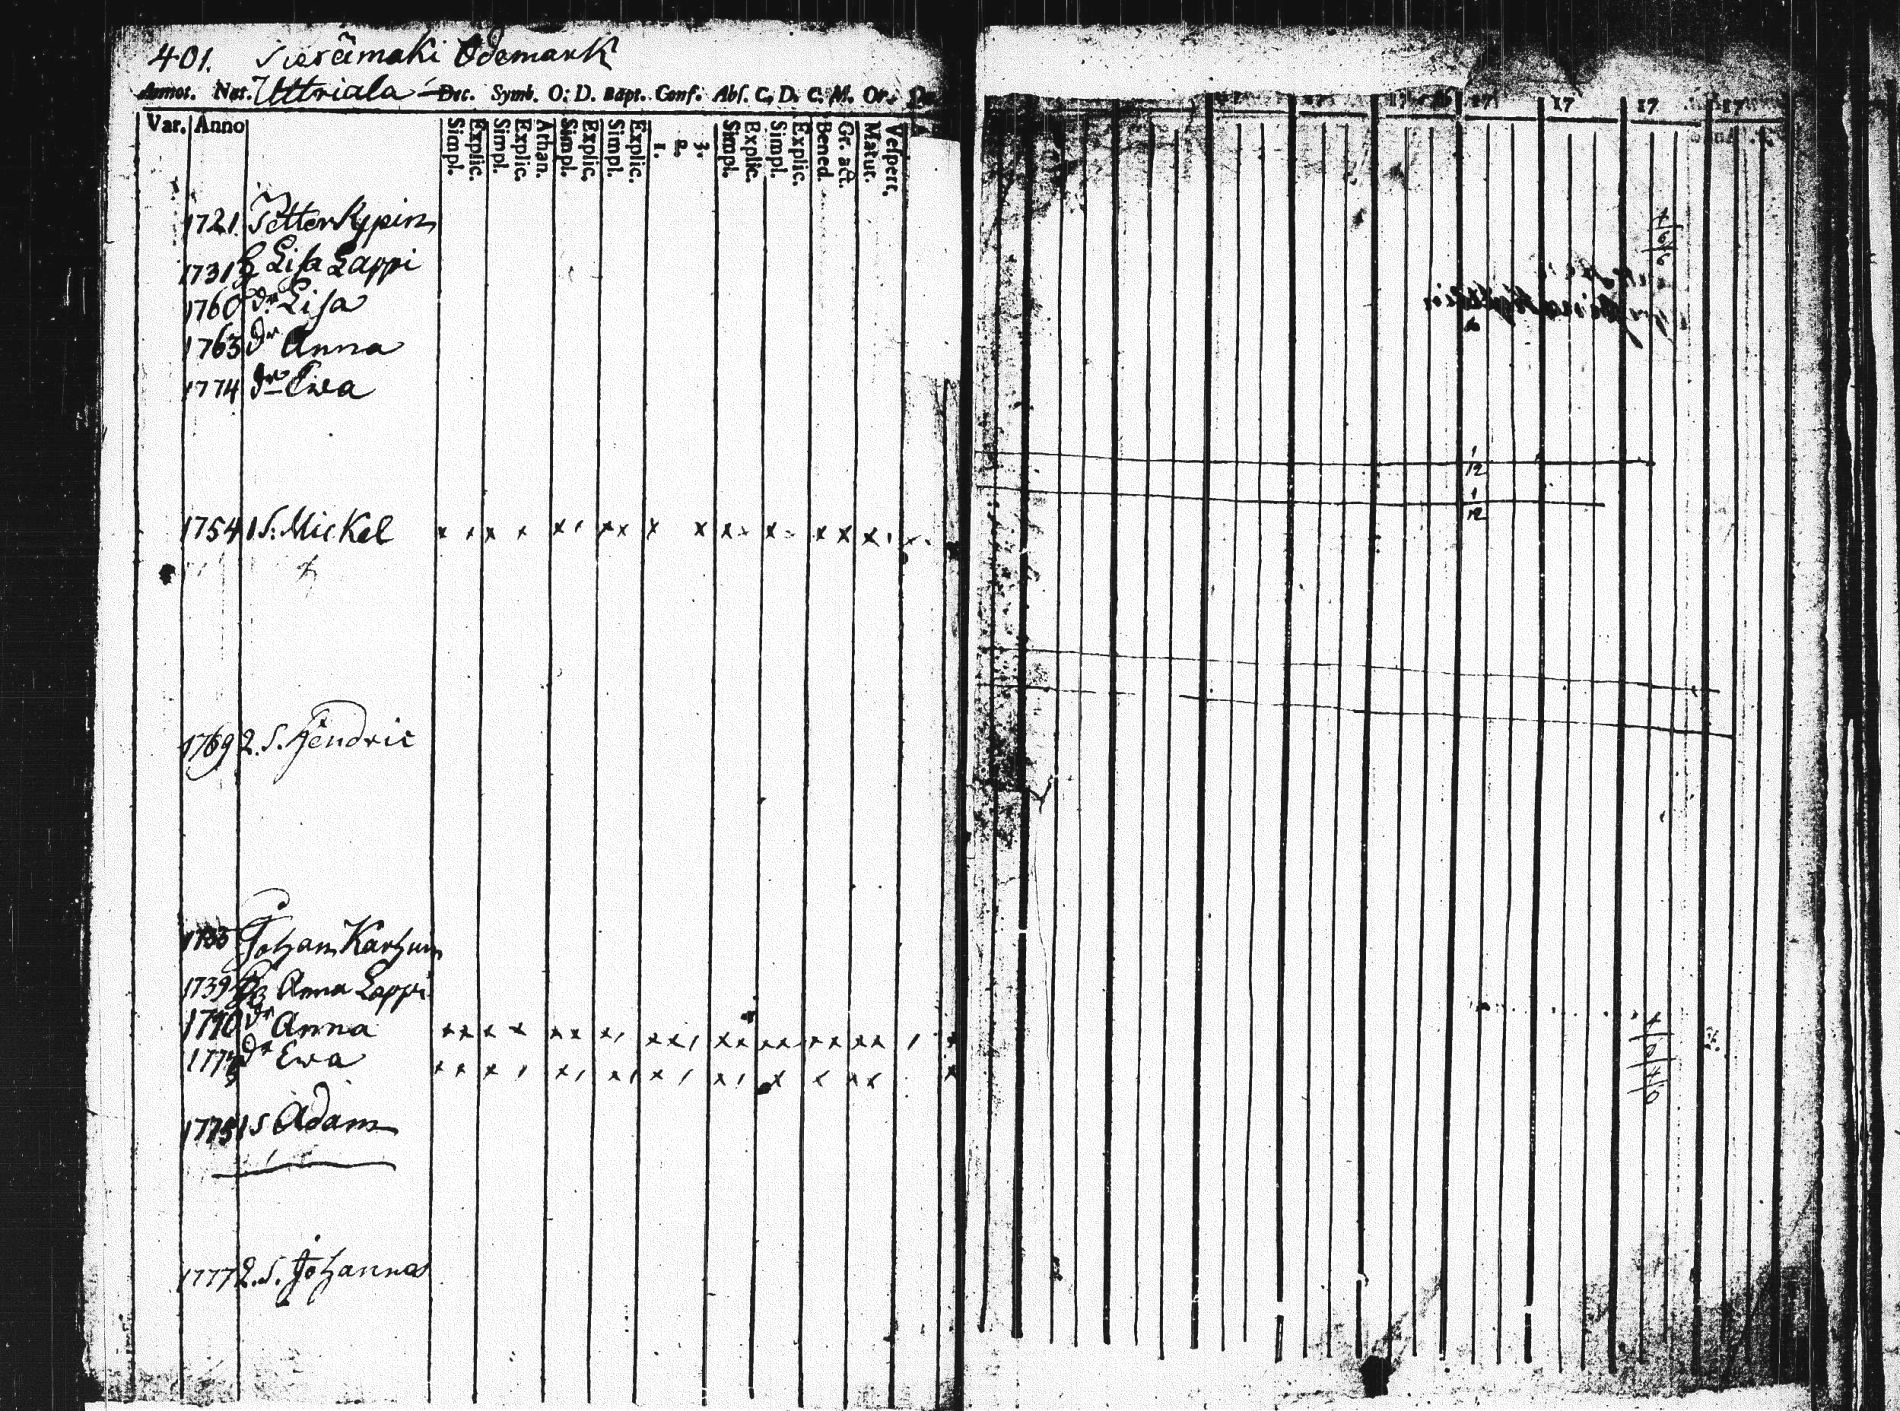 401. Sierämaki Ödemark
Annot. Nat. Uttriala Dec. Symb. O: D. Bapt. Conf. Abs. C. D. C. M. Or.
Var. Anno Simpl. Explic. Simpl. Explic. Athan. Simpl. Explic. Simpl. Explic. 1. 2. 3. Simpl. Explic. Simpl. Explic. Bened. Gr. act. Matut. Vespert. 17 17 17 17 17
1721. Petter Kypin
1731 h Lisa Lappi
1760 dr Lisa
1763 dr Anna
1774 dr Ewa
1/12
1/12
1754 1 S. Mickel
1769 2. S. Hendric
1735 Johan Karhun
1739 Anna Lappi
1770 dr Anna
177 dr Ewa
1775 1 s Adam
1777 2. s. Johannes